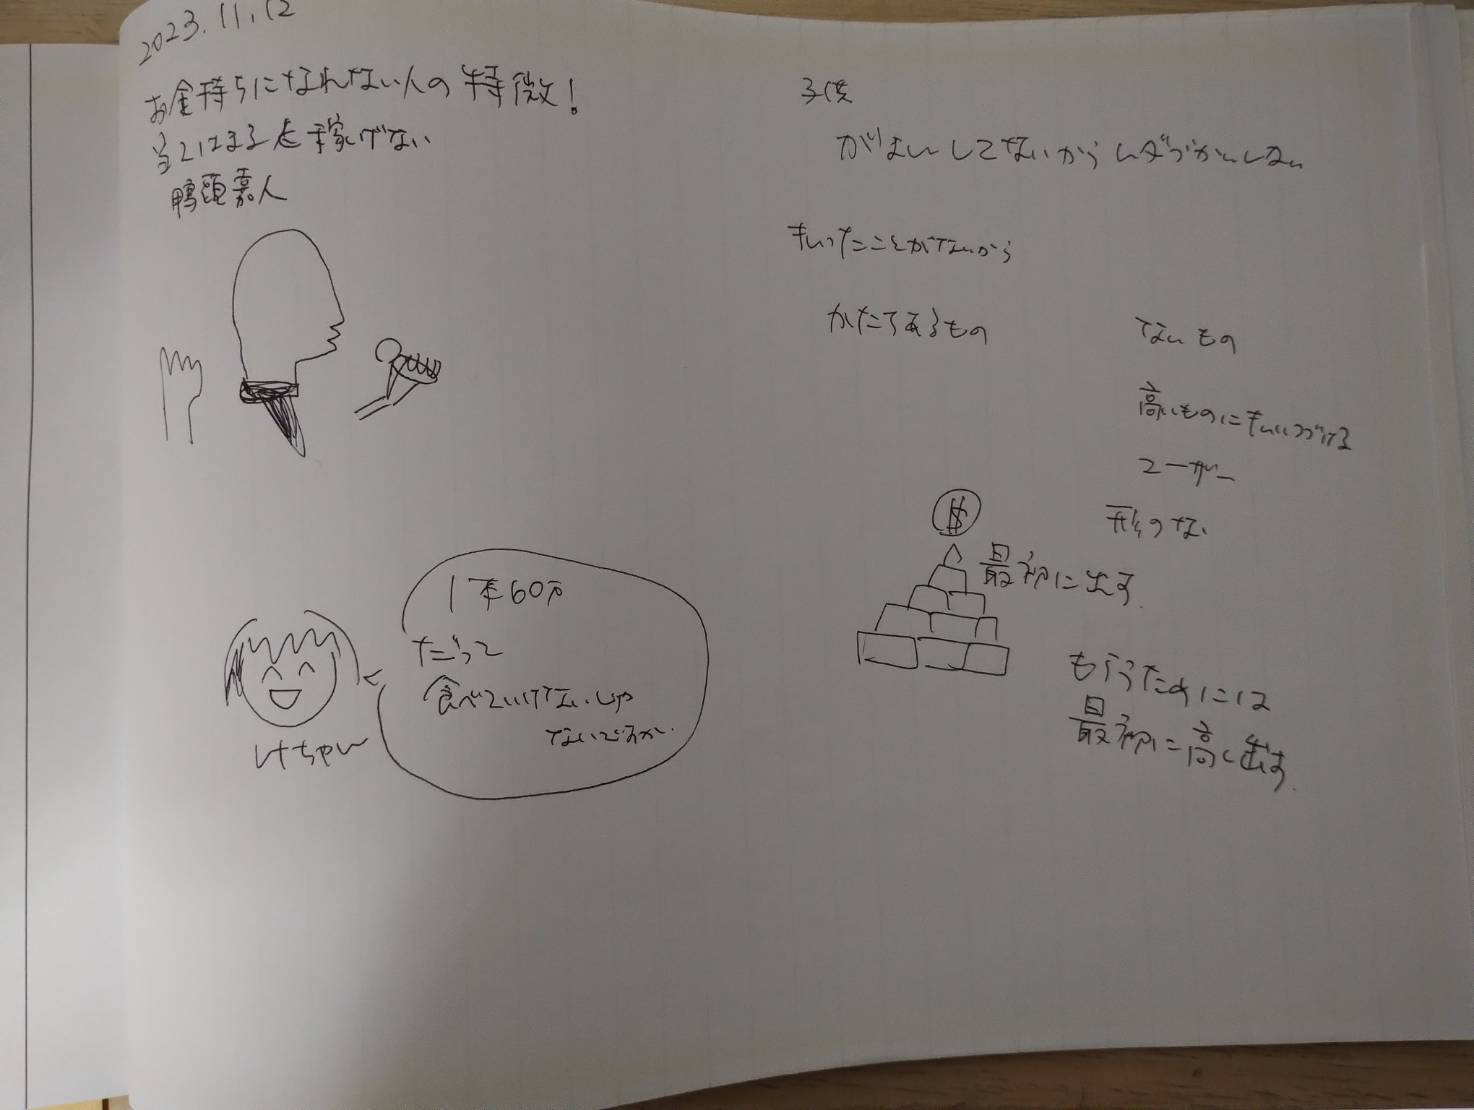 2023.11.12
お金持ちになれない人の特徴!
当てはまると稼げない
鴨頭嘉人
1本60万
だって
食べていけないじゃ
ないですか.
けちゃん
子供
がまんしてないからムダづかいしない
ことがないから
かたちあるもの
ないもの
高いものに
形のない
$
最初に出す.
もらうためには
最初に高く出す.